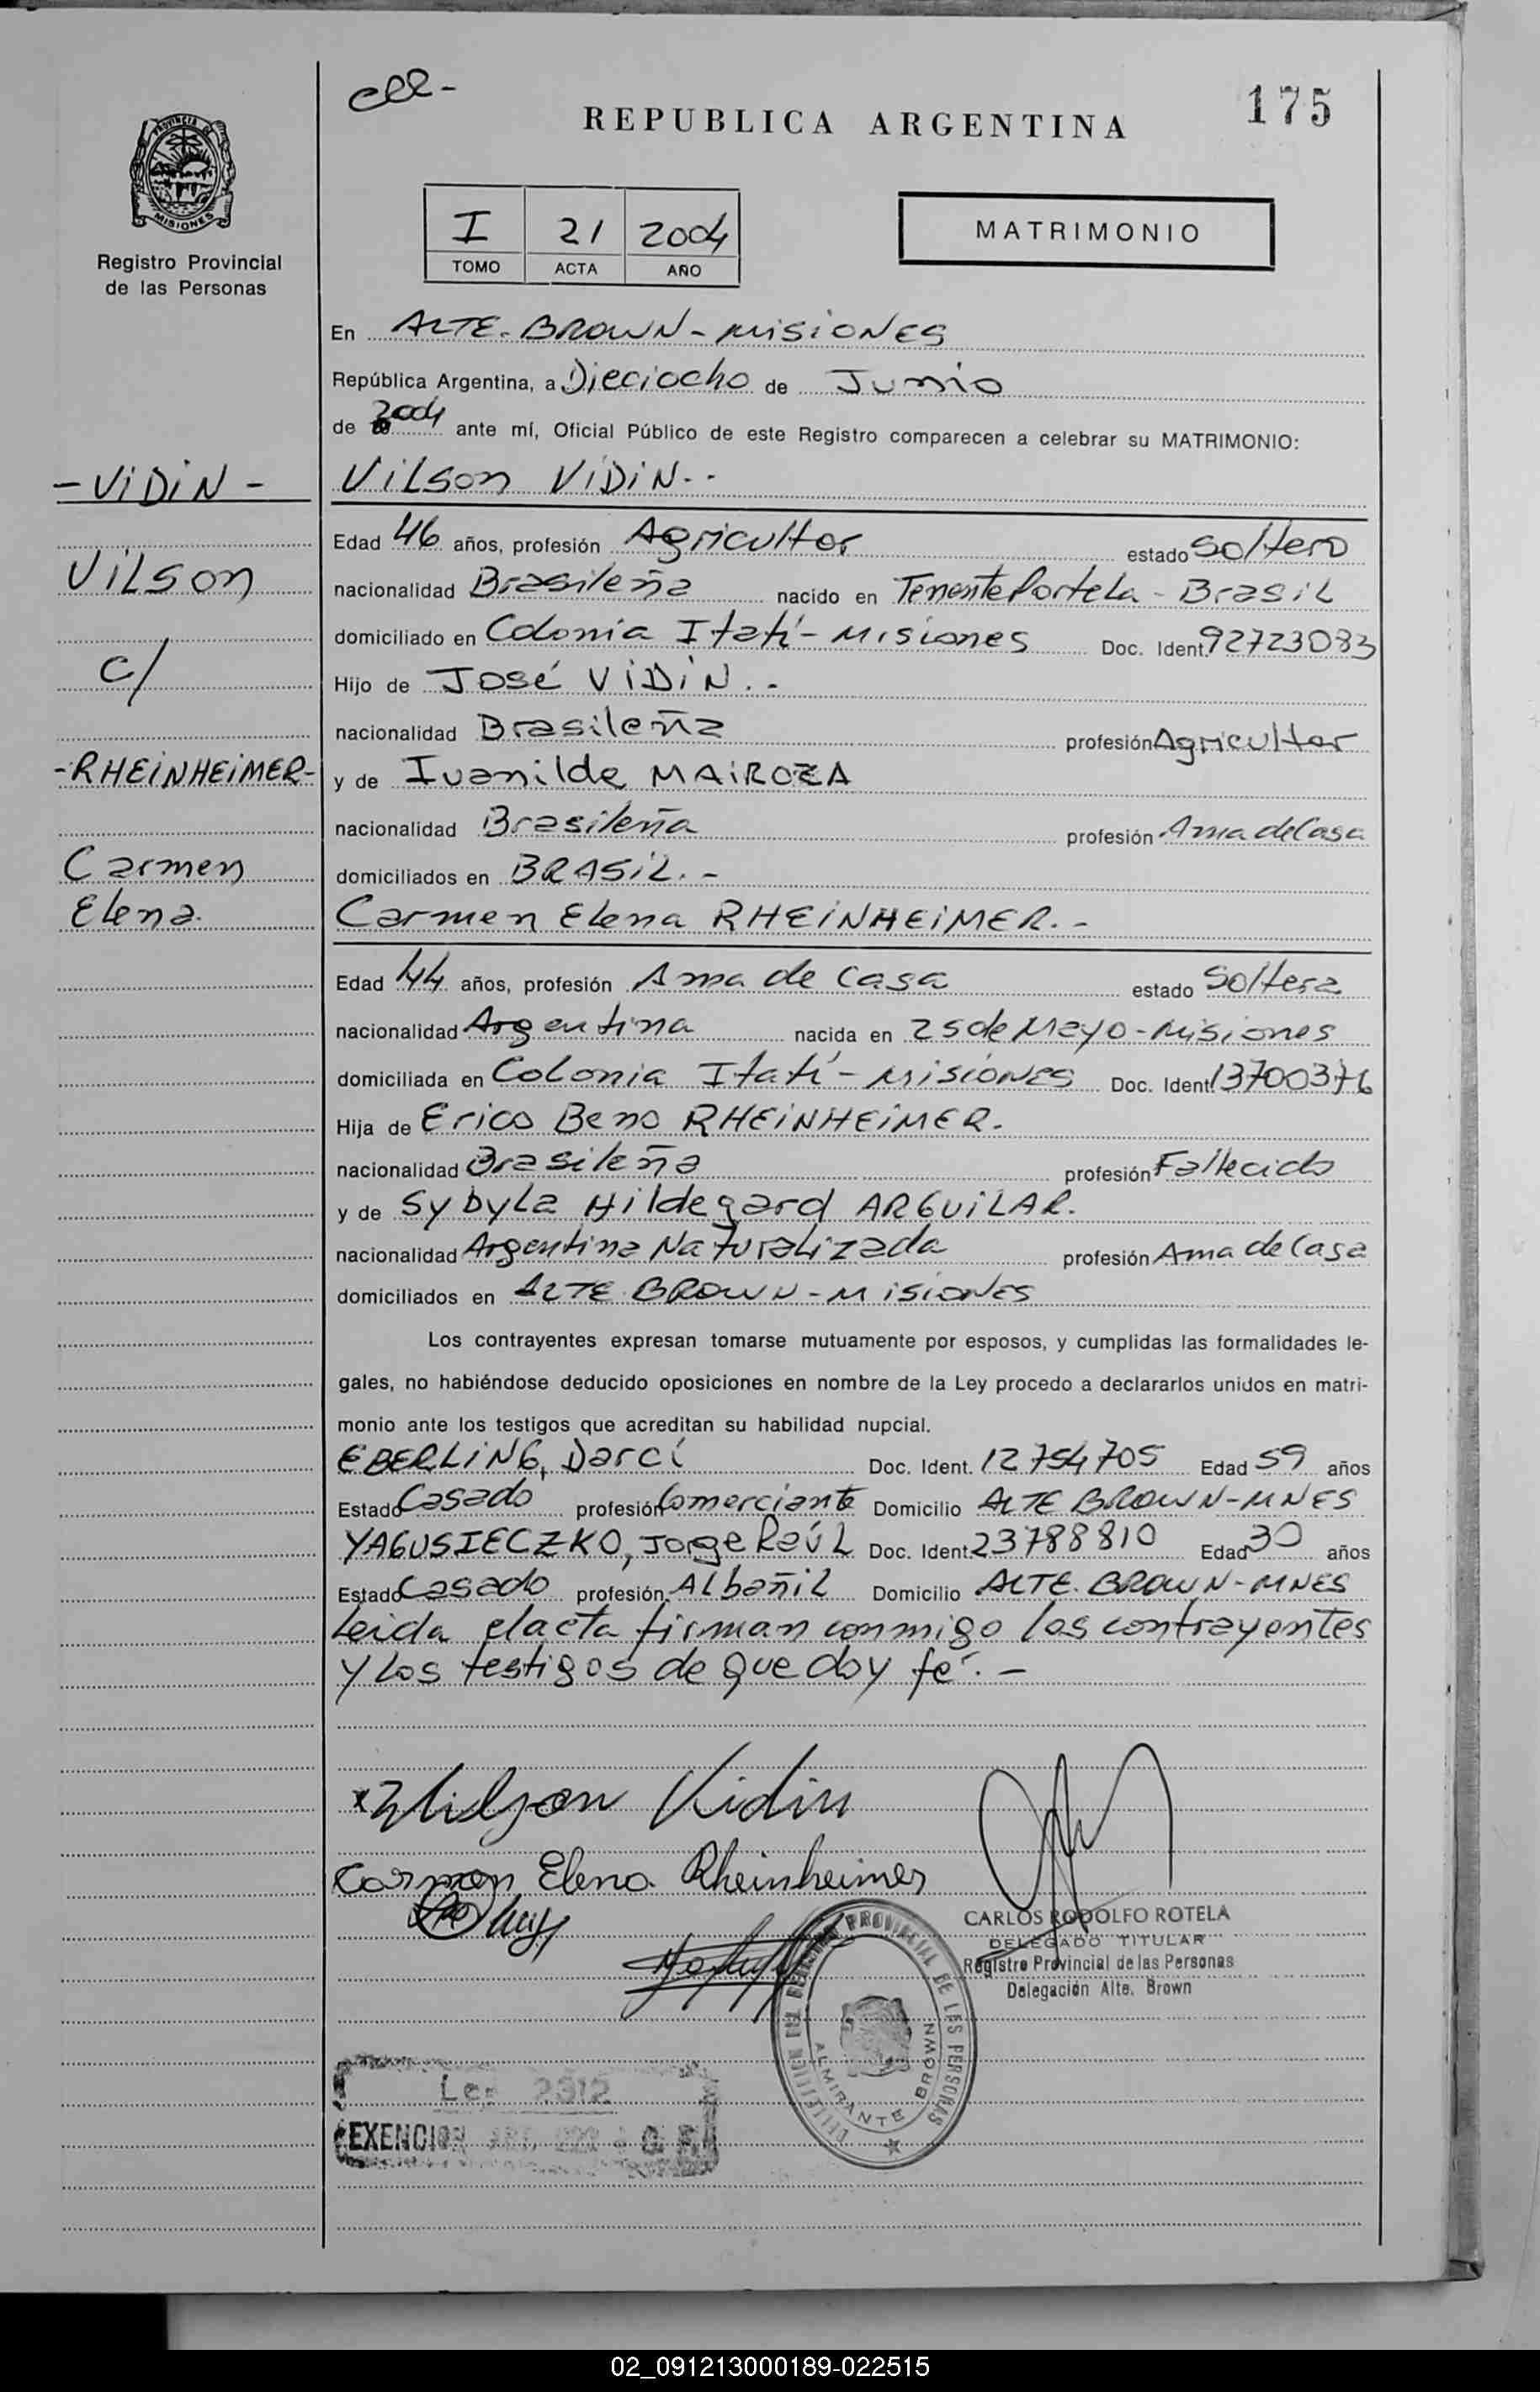 cee-
175
REPUBLICA ARGENTINA
PROVINCIA D
MISIONES
Registro Provincial
de las Personas
I 21 2004
TOMO ACTA AÑO
MATRIMONIO
En ALTE. BROWN - MISIONES
República Argentina, a Dieciocho de Junio
de 2004 ante mí, Oficial Público de este Registro comparecen a celebrar su MATRIMONIO:
- VIDIN -
Vilson
c/
-RHEINHEIMER-
Carmen
Elena.
Vilson VIDIN.-
Edad 46 años, profesión Agricultor estado Soltero
nacionalidad Brasileña nacido en Tenente Portela - Brasil
domiciliado en Colonia Itatí - Misiones Doc. Ident. 92723083
Hijo de José VIDIN.-
nacionalidad Brasileña profesión Agricultor
y de Ivanilde MAIROZA
nacionalidad Brasileña profesión Ama de Casa
domiciliados en BRASIL.-
Carmen Elena RHEINHEIMER.-
Edad 44 años, profesión Ama de Casa estado Soltera
nacionalidad Argentina nacida en 25 de Mayo - Misiones
domiciliada en Colonia Itatí - Misiones Doc. Ident. 13700376
Hija de Erico Beno RHEINHEIMER.
nacionalidad Brasileña profesión Fallecido
y de Sybyla Hildegard ARGUILAR.
nacionalidad Argentina Naturalizada profesión Ama de Casa
domiciliados en ALTE. BROWN - MISIONES
Los contrayentes expresan tomarse mutuamente por esposos, y cumplidas las formalidades le-
gales, no habiéndose deducido oposiciones en nombre de la Ley procedo a declararlos unidos en matri-
monio ante los testigos que acreditan su habilidad nupcial.
EBERLING, Darcí Doc. Ident. 12754705 Edad 59 años
Estado Casado profesión Comerciante Domicilio ALTE BROWN - MNES
YAGUSIECZKO, Jorge Raúl Doc. Ident. 23788810 Edad 30 años
Estado Casado profesión Albañil Domicilio ALTE. BROWN - MNES
Leida el acta firman conmigo los contrayentes
y los testigos de que doy fe.-
x Wilson Vidin
Carmen Elena Rheinheimer
CARLOS RODOLFO ROTELA
DELEGADO TITULAR
Registro Provincial de las Personas
Delegación Alte. Brown
DELEGACION DEL REGISTRO PROVINCIAL DE LAS PERSONAS
ALMIRANTE BROWN
Ley 2312
EXENCION
02_091213000189-022515